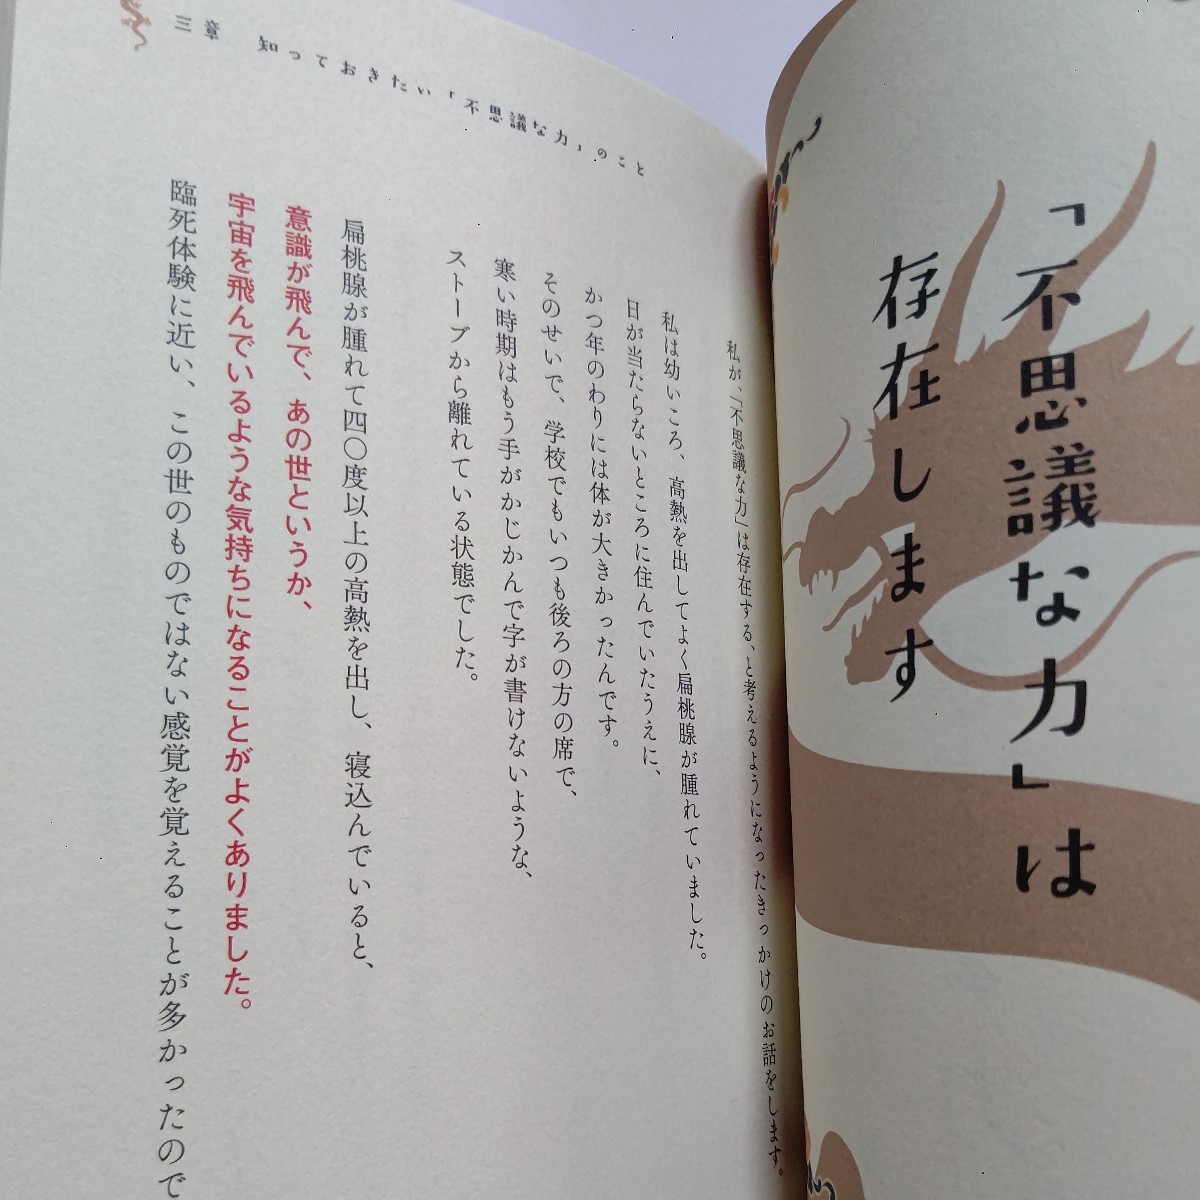 「不思議な力」は
存在します
三章　知っておきたい「不思議な力」のこと
私が、「不思議な力」は存在する、と考えるようになったきっかけのお話をします。
私は幼いころ、高熱を出してよく扁桃腺が腫れていました。
日が当たらないところに住んでいたうえに、
かつ年のわりには体が大きかったんです。
そのせいで、学校でもいつも後ろの方の席で、
寒い時期はもう手がかじかんで字が書けないような、
ストーブから離れている状態でした。
扁桃腺が腫れて四〇度以上の高熱を出し、寝込んでいると、
意識が飛んで、あの世というか、
宇宙を飛んでいるような気持ちになることがよくありました。
臨死体験に近い、この世のものではない感覚を覚えることが多かったので